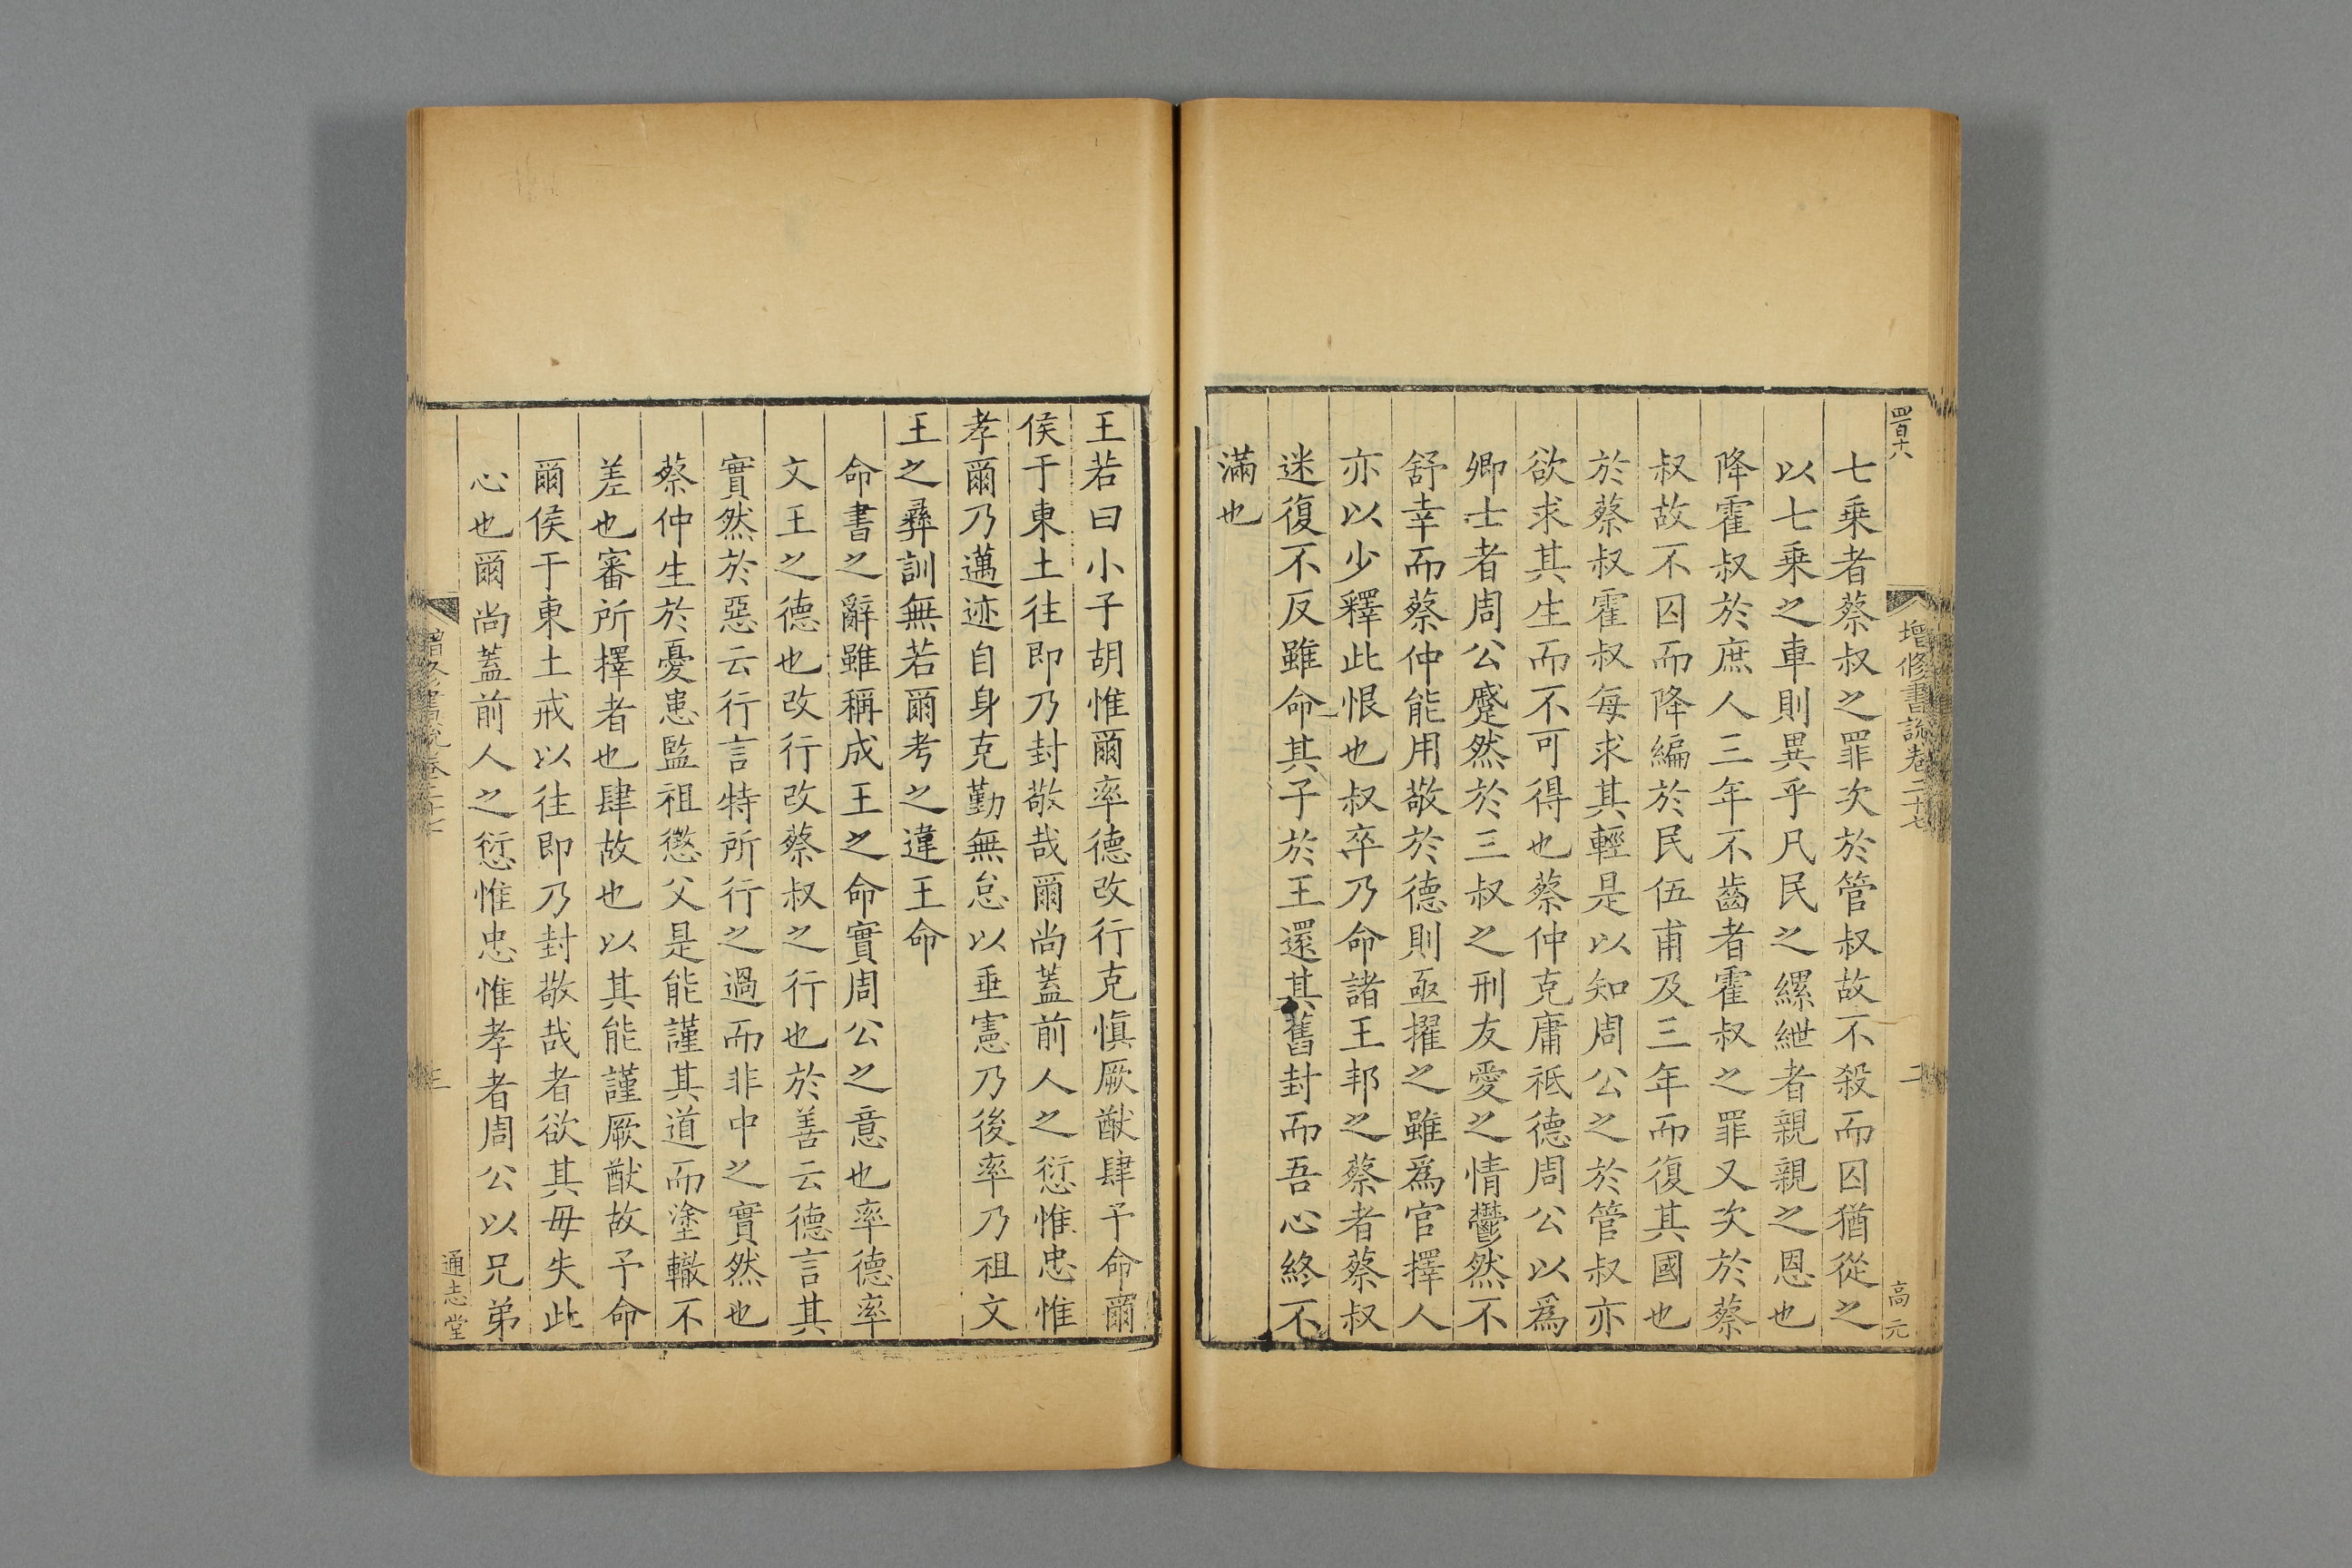 四百十八
增修書說卷二十七
二
高元
七乘者蔡叔之罪次於管叔故不殺而囚猶從之
以七乘之車則異乎凡民之縲紲者親親之恩也
降霍叔於庶人三年不齒者霍叔之罪又次於蔡
叔故不囚而降編於民伍甫及三年而復其國也
於蔡叔霍叔每求其輕是以知周公之於管叔亦
欲求其生而不可得也蔡仲克庸祗德周公以爲
卿士者周公蹙然於三叔之刑友愛之情鬱然不
舒幸而蔡仲能用敬於德則亟擢之雖爲官擇人
亦以少釋此恨也叔卒乃命諸王邦之蔡者蔡叔
迷復不反雖命其子於王還其舊封而吾心終不
滿也
王若曰小子胡惟爾率德改行克愼厥猷肆予命爾
侯于東土往即乃封敬哉爾尚蓋前人之愆惟忠惟
孝爾乃邁迹自身克勤無怠以垂憲乃後率乃祖文
王之彞訓無若爾考之違王命
命書之辭雖稱成王之命實周公之意也率德率
文王之德也改行改蔡叔之行也於善云德言其
實然於惡云行言特所行之過而非中之實然也
蔡仲生於憂患監祖懲父是能謹其道而塗轍不
差也審所擇者也肆故也以其能謹厥猷故予命
爾侯于東土戒以往即乃封敬哉者欲其毋失此
心也爾尚蓋前人之愆惟忠惟孝者周公以兄弟
增修書說卷二十七
三
通志堂